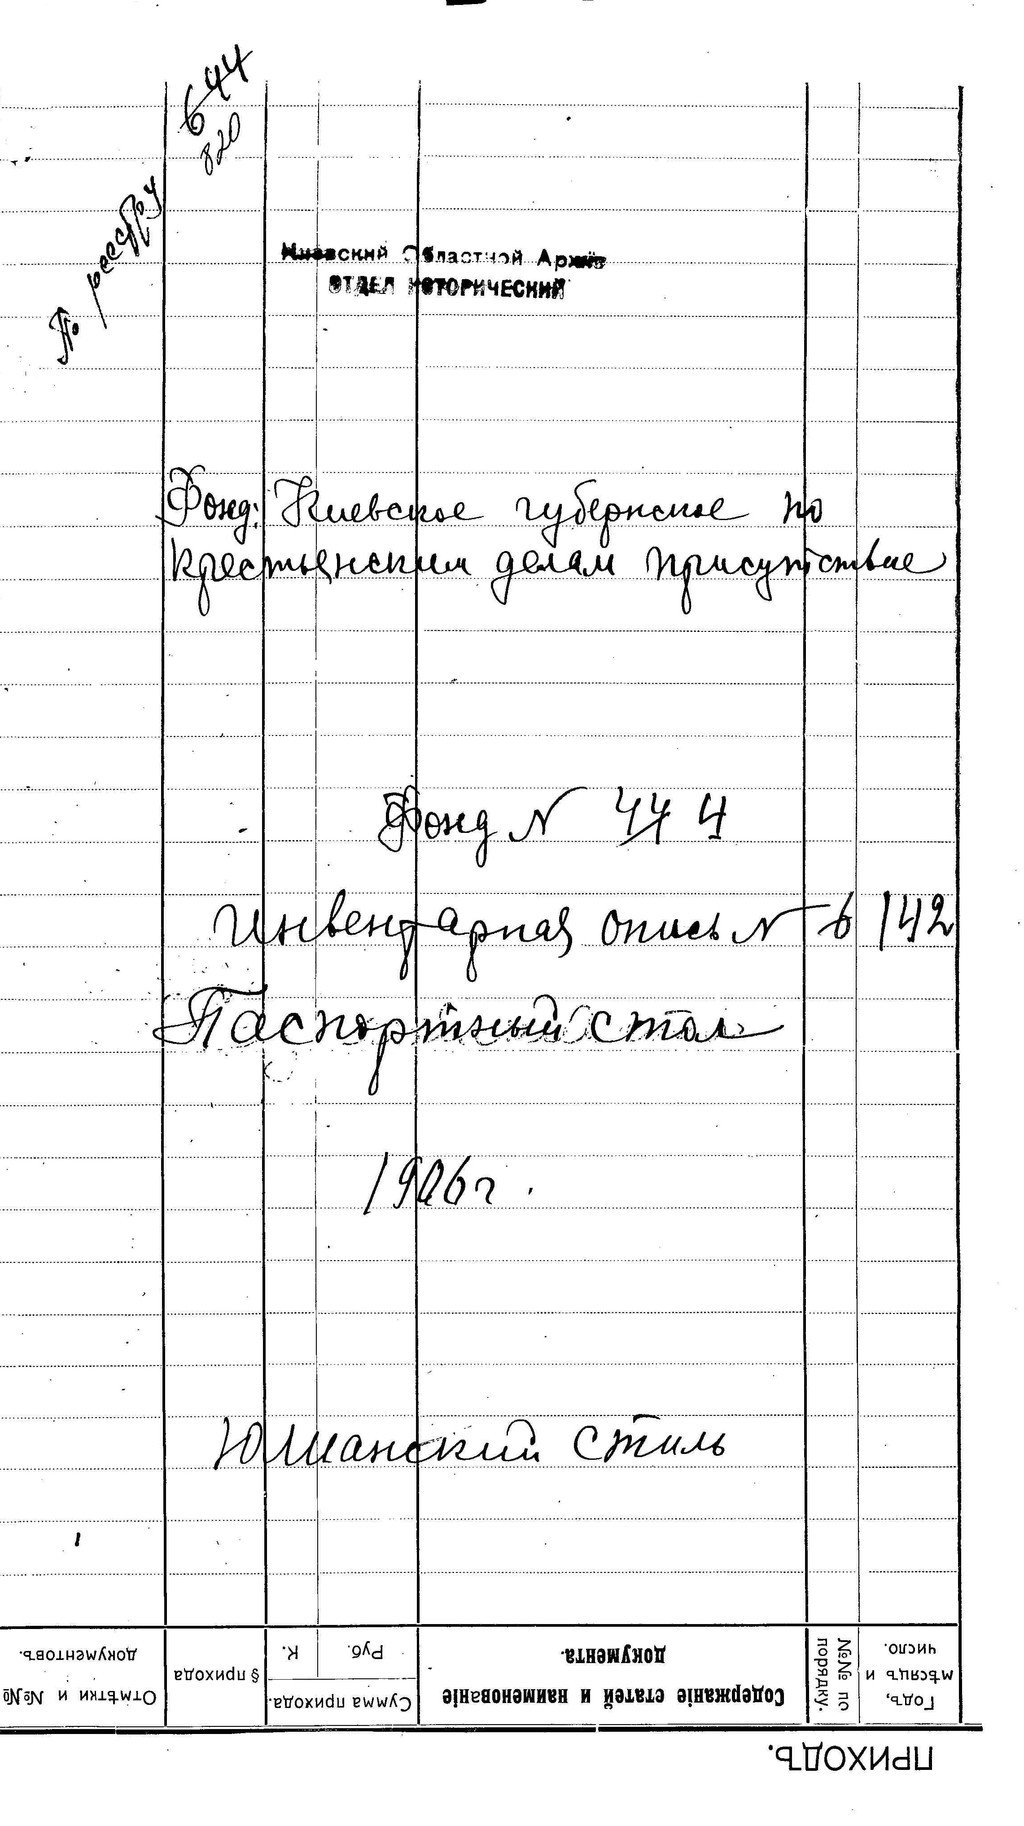 644
820
По реестру
Киевский Областной Архив
ОТДЕЛ ИСТОРИЧЕСКИЙ
Фонд: Киевское губернское по
крестьянским делам присутствие
Фонд N 444
Инвентарная опись N 6 142
Паспортный стол
1906 г.
Юлианский стиль
ПРИХОДЪ.
Годъ, мѣсяцъ и число.
№№ по порядку.
Содержаніе статей и наименованіе документа.
Сумма прихода.
Руб.
К.
§ прихода
Отмѣтки и №№ документовъ.